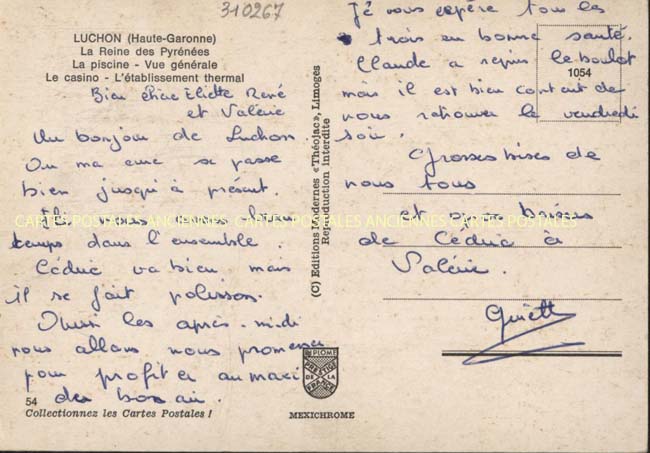 310267
LUCHON (Haute-Garonne)
La Reine des Pyrénées
La piscine - Vue générale
Le casino - L'établissement thermal
Bien chère Eliette René
et Valérie
Un bonjour de Luchon.
Ou ma cure se passe
bien jusqu'à présent.
nous avons bien
temps dans l'ensemble
Cédric va bien mais
il se fait polisson.
Ouvri les après-midi
nous allons nous promener
pour profiter au maxi
du bon air.
54
Collectionnez les Cartes Postales !
(C) Editions Modernes «Théojac», Limoges
Reproduction interdite
DIPLOME
PRESTIGE
DE LA
FRANCE
MEXICHROME
Je vous espère tous les
trois en bonne santé.
Claude a repris le boulot
1054
mais il est bien content de
nous retrouver le vendredi
soir.
Grosses bises de
nous tous
et spéciales
de Cédric à
Valérie.
CARTES POSTALES ANCIENNES CARTES POSTALES ANCIENNES CARTES POSTALES ANCIENNES